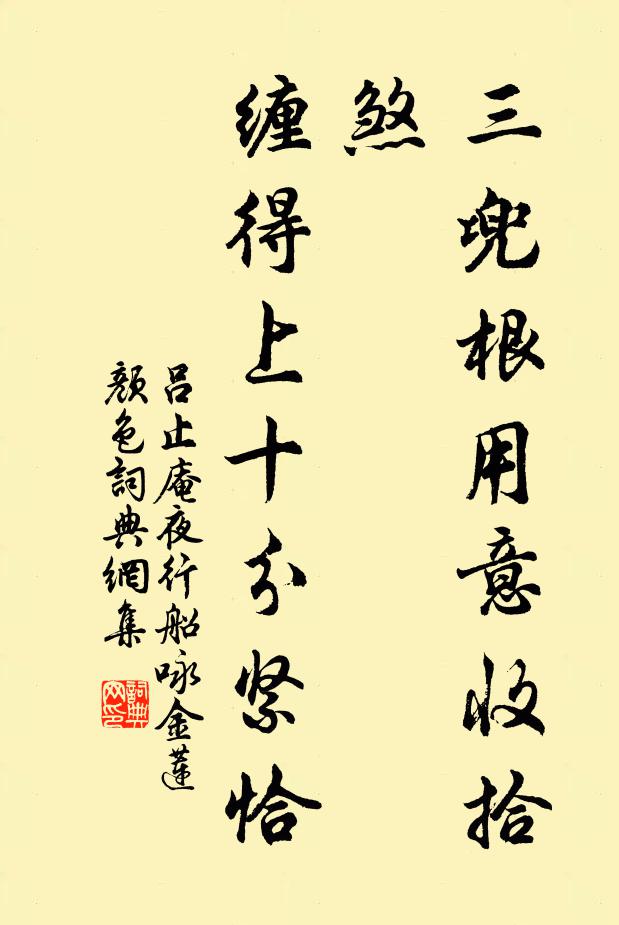 三兜根用意收拾
煞
缠得上十分紧恰
吕止庵夜行船咏金蓮
颜色詞典網集
詞典网印